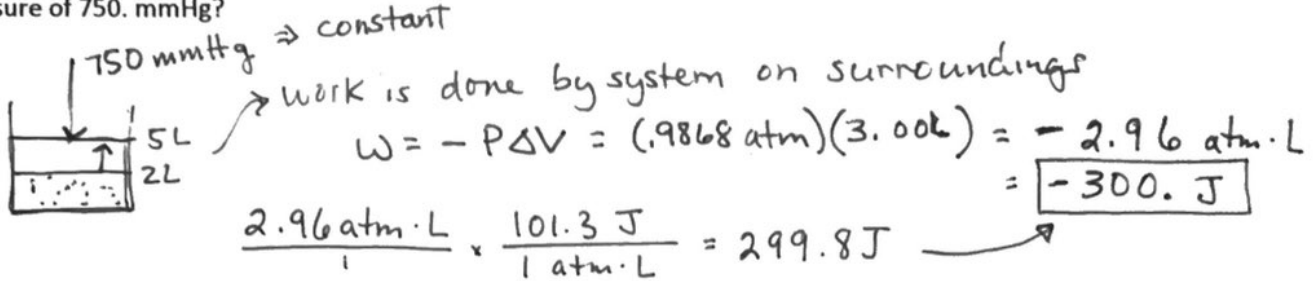 sure of 750. mmHg?
750 mmHg ⇒ constant
→ work is done by system on surroundings
5L
2L
w = - PΔV = (.9868 atm)(3.00L) = - 2.96 atm·L
= -300. J
2.96 atm·L / 1 x 101.3 J / 1 atm·L = 299.8J